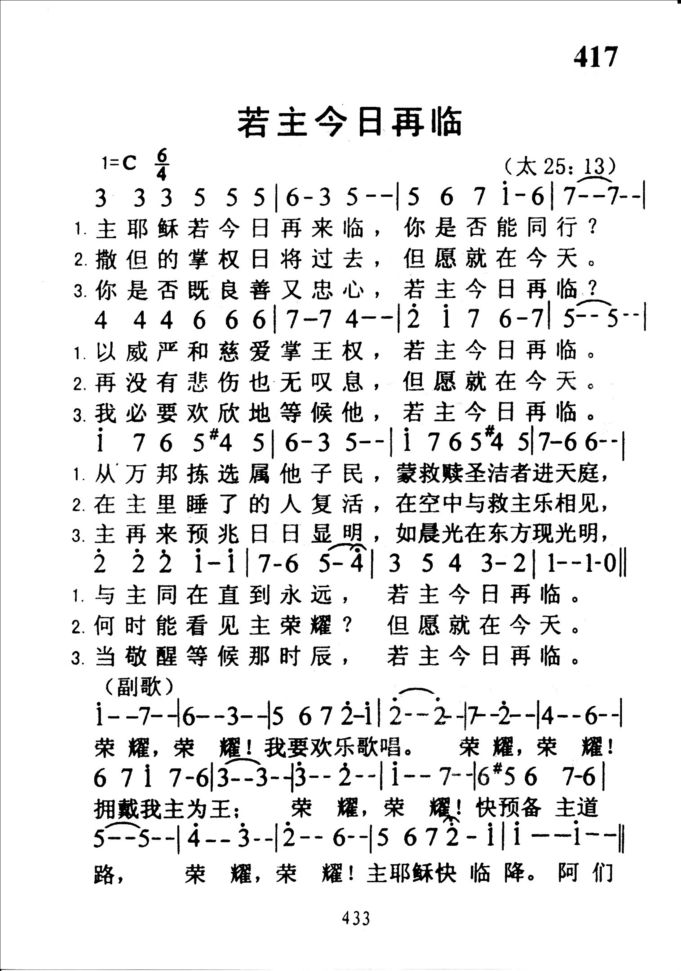 417
若主今日再临
1=C 6/4 （太25：13）
3 3 3 5 5 5 | 6-3 5-- | 5 6 7 i-6 | 7--7-- |
1. 主耶稣若今日再来临，你是否能同行？
2. 撒但的掌权日将过去，但愿就在今天。
3. 你是否既良善又忠心，若主今日再临？
4 4 4 6 6 6 | 7-7 4-- | 2̇ i 7 6-7 | 5--5-- |
1. 以威严和慈爱掌王权，若主今日再临。
2. 再没有悲伤也无叹息，但愿就在今天。
3. 我必要欢欣地等候他，若主今日再临。
i 7 6 5 #4 5 | 6-3 5-- | i 7 6 5 #4 5 | 7-6 6-- |
1. 从万邦拣选属他子民，蒙救赎圣洁者进天庭，
2. 在主里睡了的人复活，在空中与救主乐相见，
3. 主再来预兆日日显明，如晨光在东方现光明，
2̇ 2̇ 2̇ i-i | 7-6 5-4 | 3 5 4 3-2 | 1--1-0 ||
1. 与主同在直到永远，若主今日再临。
2. 何时能看见主荣耀？但愿就在今天。
3. 当敬醒等候那时辰，若主今日再临。
（副歌）
i--7-- | 6--3-- | 5 6 7 2̇-i | 2̇--2̇-- | 7--2̇-- | 4--6-- |
荣耀，荣耀！我要欢乐歌唱。荣耀，荣耀！
6 7 i 7-6 | 3̇--3̇-- | 3̇--2̇-- | i--7-- | 6 #5 6 7-6 |
拥戴我主为王；荣耀，荣耀！快预备主道
5--5-- | 4̇--3̇-- | 2̇--6-- | 5 6 7 2̇-i | i--i-- ||
路，荣耀，荣耀！主耶稣快临降。阿们
433